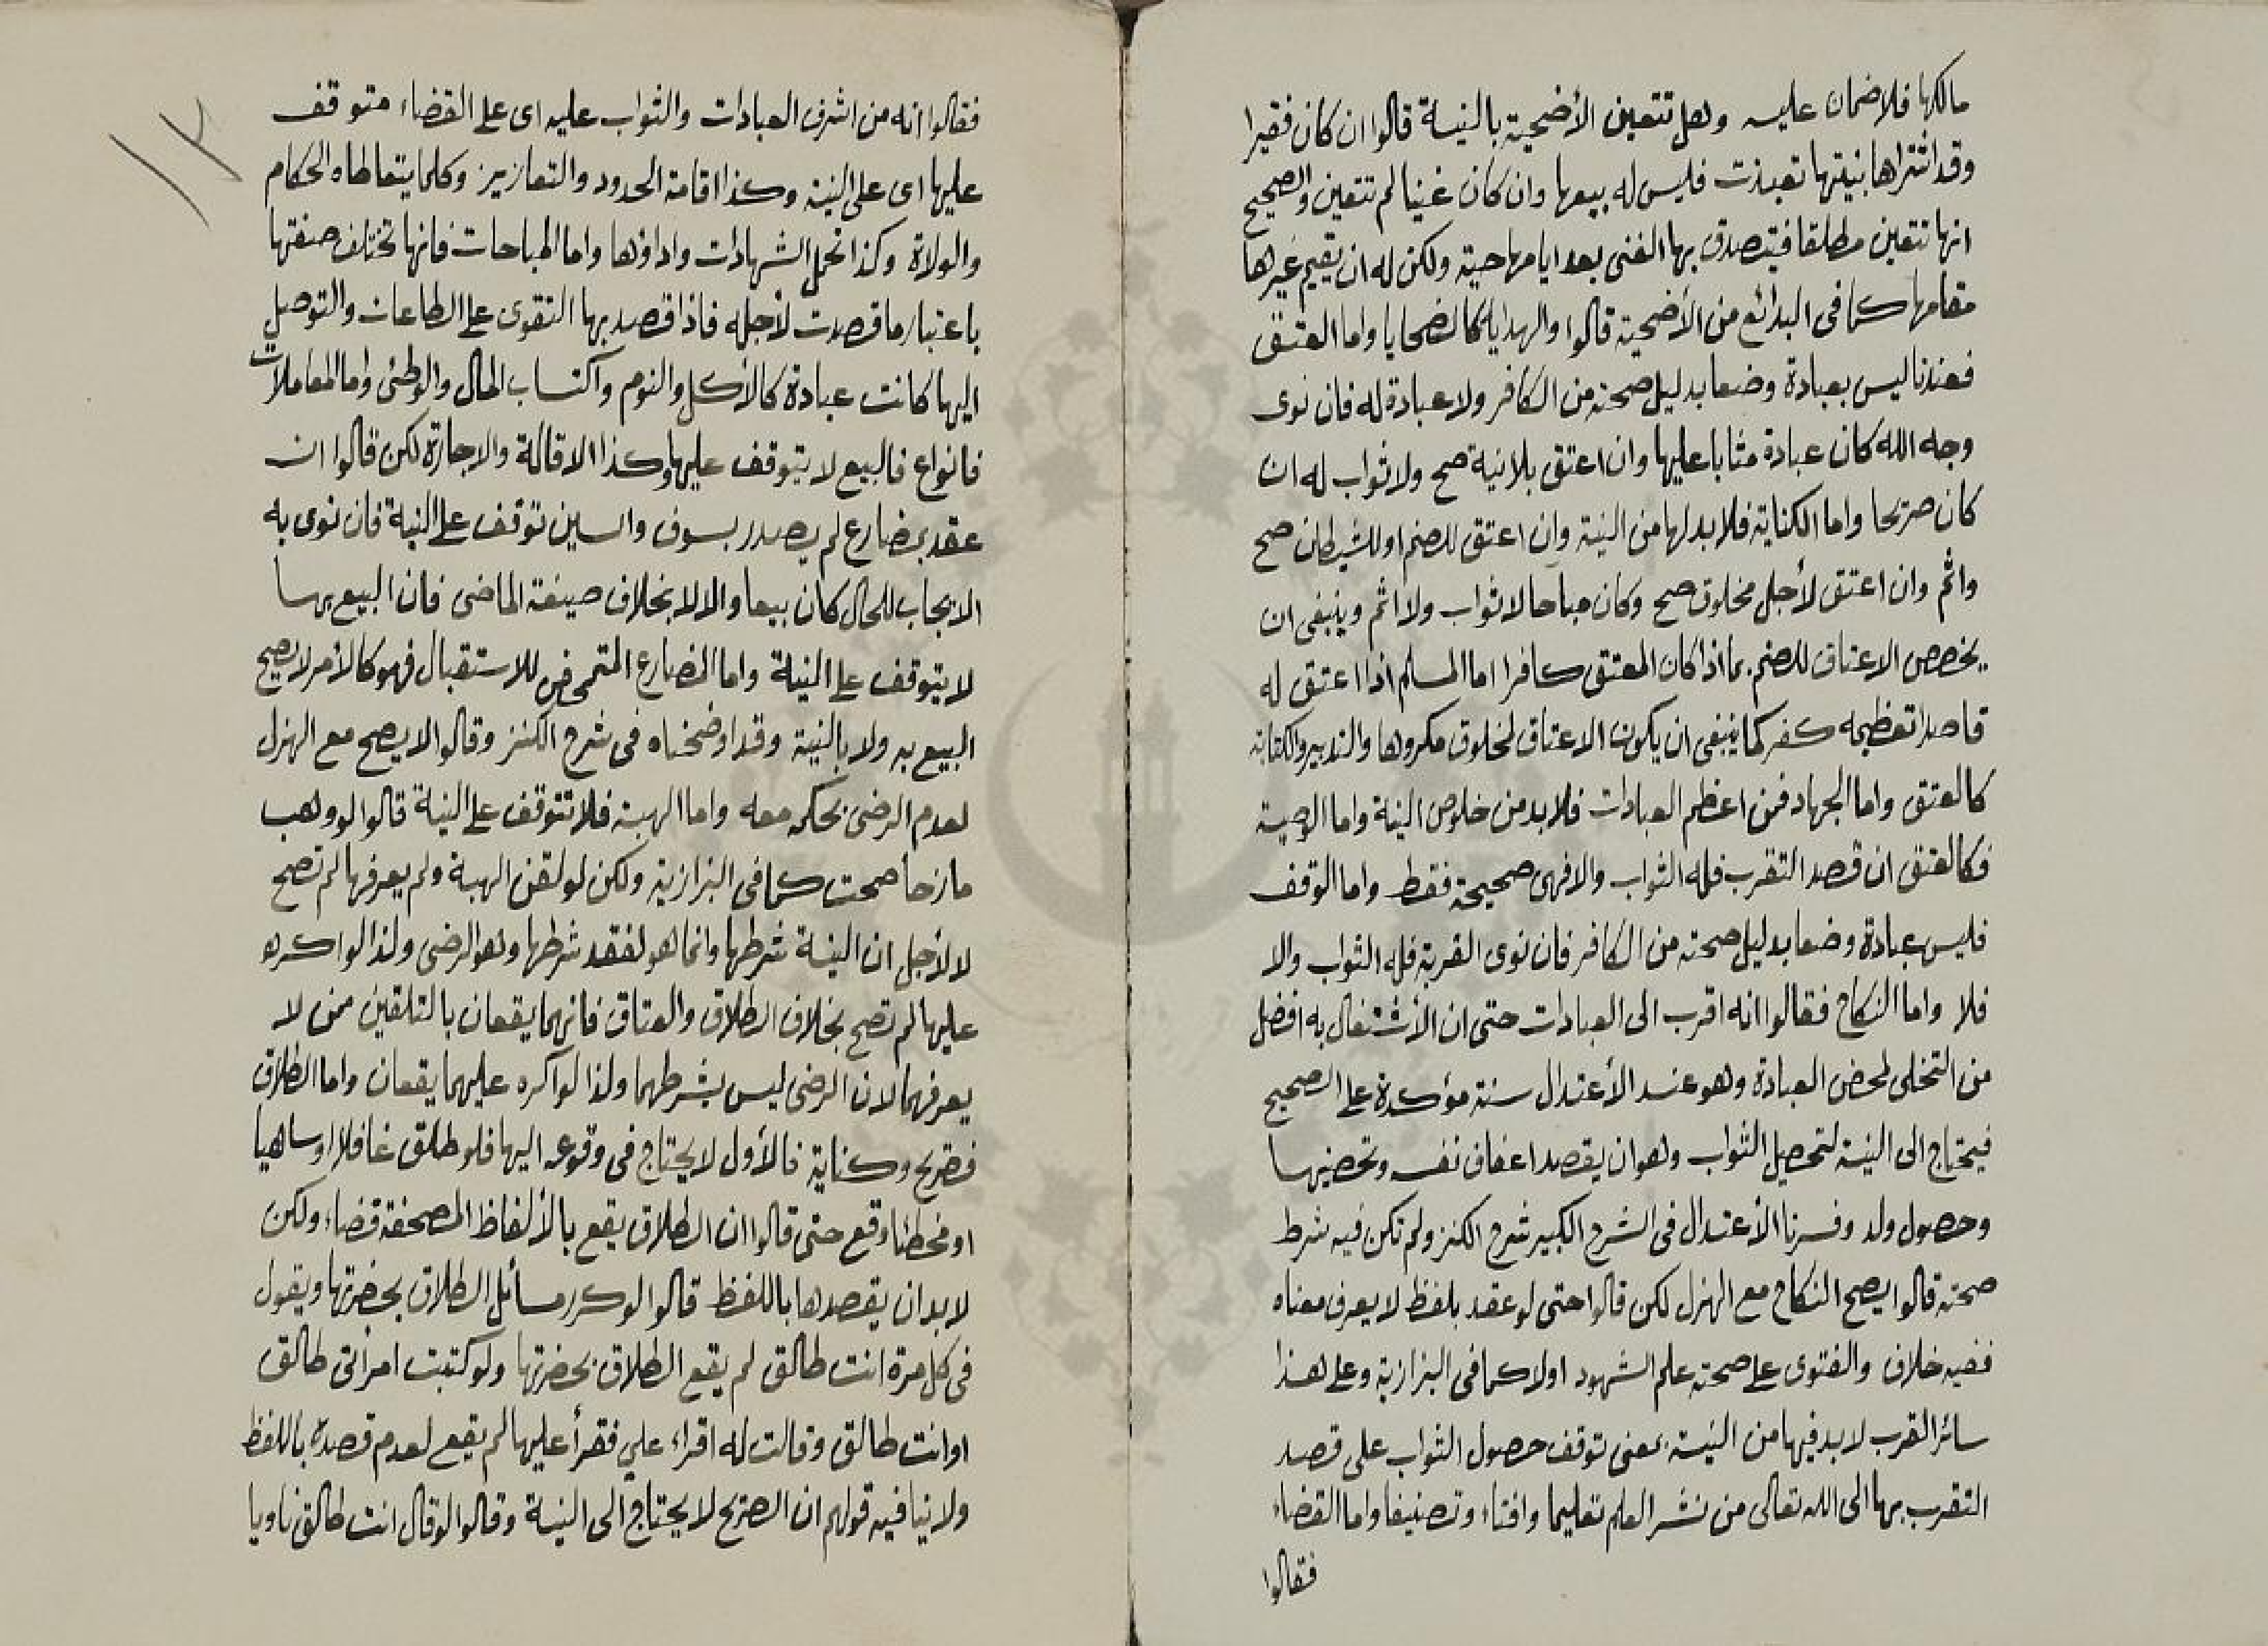 مالكها فلا ضمان عليه وهل تتعين الأضحية بالنية قالوا ان كان فقيرا
وقد اشتراها بنيتها تعينت فليس له بيعها وان كان غنيا لم تتعين والصحيح
انها تتعين مطلقا فيتصدق بها الغنى بعد ايامها حية ولكن له ان يقيم غيرها
مقامها كما فى البدائع من الأضحية قالوا والهدايا كالضحايا واما العتق
فعندنا ليس بعبادة وضعا بدليل صحته من الكافر ولا عبادة له فان نوى
وجه الله كان عبادة مثابا عليها وان اعتق بلا نية صح ولا ثواب له ان
كان صريحا واما الكناية فلا بد لها من النية وان اعتق للصنم او للشيطان صح
واثم وان اعتق لأجل مخلوق صح وكان مباحا لا ثواب ولا اثم وينبغى ان
يخصص الاعتاق للصنم بما اذا كان المعتق كافرا اما المسلم اذا اعتق له
قاصدا تعظيمه كفر كما ينبغى ان يكون الاعتاق لمخلوق مكروها والتدبير والكتابة
كالعتق واما الجهاد فمن اعظم العبادات فلا بد من خلوص النية واما الوصية
فكالعتق ان قصد التقرب فله الثواب والا فهى صحيحة فقط واما الوقف
فليس عبادة وضعا بدليل صحته من الكافر فان نوى القربة فله الثواب والا
فلا واما النكاح فقالوا انه اقرب الى العبادات حتى ان الأشتغال به افضل
من التخلى لمحض العبادة وهو عند الأعتدال سنة مؤكدة على الصحيح
فيحتاج الى النية لتحصيل الثواب وهو ان يقصد اعفاف نفسه وتحصينها
وحصول ولد وفسرنا الأعتدال فى الشرح الكبير شرح الكنز ولم تكن فيه شرط
صحته قالوا يصح النكاح مع الهزل لكن قالوا حتى لو عقد بلفظ لا يعرف معناه
ففيه خلاف والفتوى على صحته علم الشهود اولا كما فى البزازية وعلى هذا
سائر القرب لا بد فيها من النية بمعنى توقف حصول الثواب على قصد
التقرب بها الى الله تعالى من نشر العلم تعليما وافتاء وتصنيفا واما القضاء
فقالوا
١٢
فقالوا انه من اشرف العبادات والثواب عليه اى على القضاء متوقف
عليها اى على النية وكذا اقامة الحدود والتعازيز وكلما يتعاطاه الحكام
والولاة وكذا تحمل الشهادات واداؤها واما المباحات فانها تختلف صفتها
باعتبار ما قصدت لأجله فاذا قصد بها التقوى على الطاعات والتوصل
اليها كانت عبادة كالأكل والنوم واكتساب المال والوطئى واما المعاملات
فانواع فالبيع لا يتوقف عليها وكذا الاقالة والاجارة لكن قالوا ان
عقد بمضارع لم يصدر بسوف والسين توقف على النية فان نوى به
الايجاب للحال كان بيعا والا لا بخلاف صيغة الماضى فان البيع بها
لا يتوقف على النية واما المضارع المتمحض للاستقبال فهو كالأمر لا يصح
البيع به ولا بالنية وقد اوضحناه فى شرح الكنز وقالوا لا يصح مع الهزل
لعدم الرضى بحكمه معه واما الهبة فلا تتوقف على النية قالوا لو وهب
مازحا صحت كما فى البزازية ولكن لو لقن الهبة ولم يعرفها لم تصح
لا لأجل ان النية شرطها وانما هو لفقد شرطها وهو الرضى ولذا لو اكره
عليها لم تصح بخلاف الطلاق والعتاق فانهما يقعان بالتلقين ممن لا
يعرفهما لان الرضى ليس بشرطهما ولذا لو اكره عليهما يقعان واما الطلاق
فصريح وكناية فالأول لا يحتاج فى وقوعه اليها فلو طلق غافلا او ساهيا
او مخطئا وقع حتى قالوا ان الطلاق يقع بالألفاظ المصحفة قضاء ولكن
لا بد ان يقصدها باللفظ قالوا لو كرر مسائل الطلاق بحضرتها ويقول
فى كل مرة انت طالق لم يقع الطلاق بحضرتها ولو كتبت امراتى طالق
او انت طالق وقالت له اقراء علي فقرأ عليها لم يقع لعدم قصده باللفظ
ولا ينافيه قولهم ان الصريح لا يحتاج الى النية وقالوا لو قال انت طالق ناويا